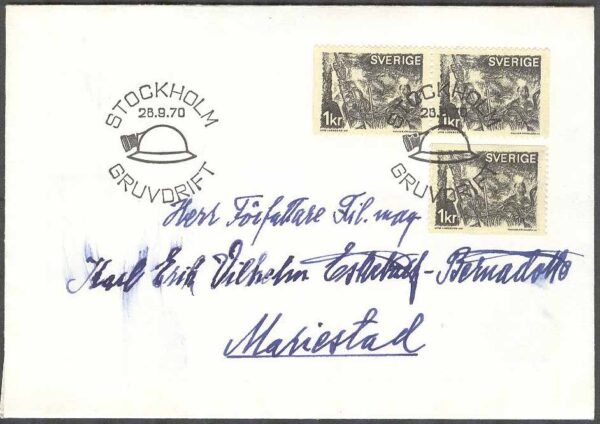 STOCKHOLM
28.9.70
GRUVDRIFT
SVERIGE
1kr
SVERIGE
1kr
STOCKHOLM
28.9.70
GRUVDRIFT
SVERIGE
1kr
Herr Författare Fil. mag.
Karl Erik Vilhelm - Bernadotte
Mariestad